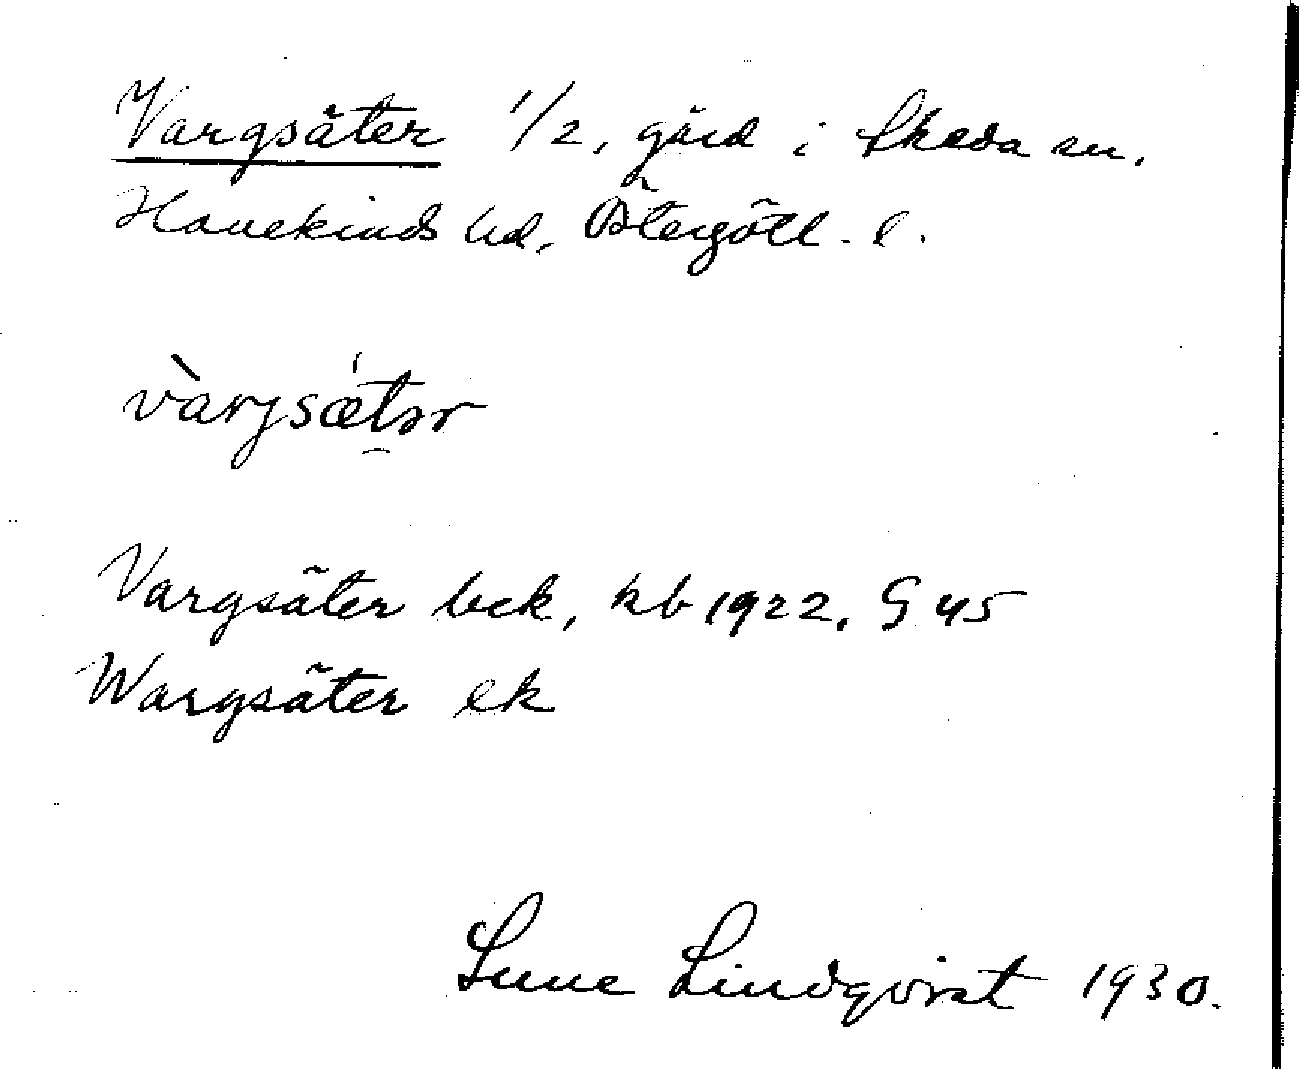 Vargsäter 1/2, gård i Skeda sn.
Hanekinds hd, Östergötl. l.
vàrjsǽtər
Vargsäter bek, kb 1922, G 45
Wargsäter ek
Sune Lindqvist 1930.